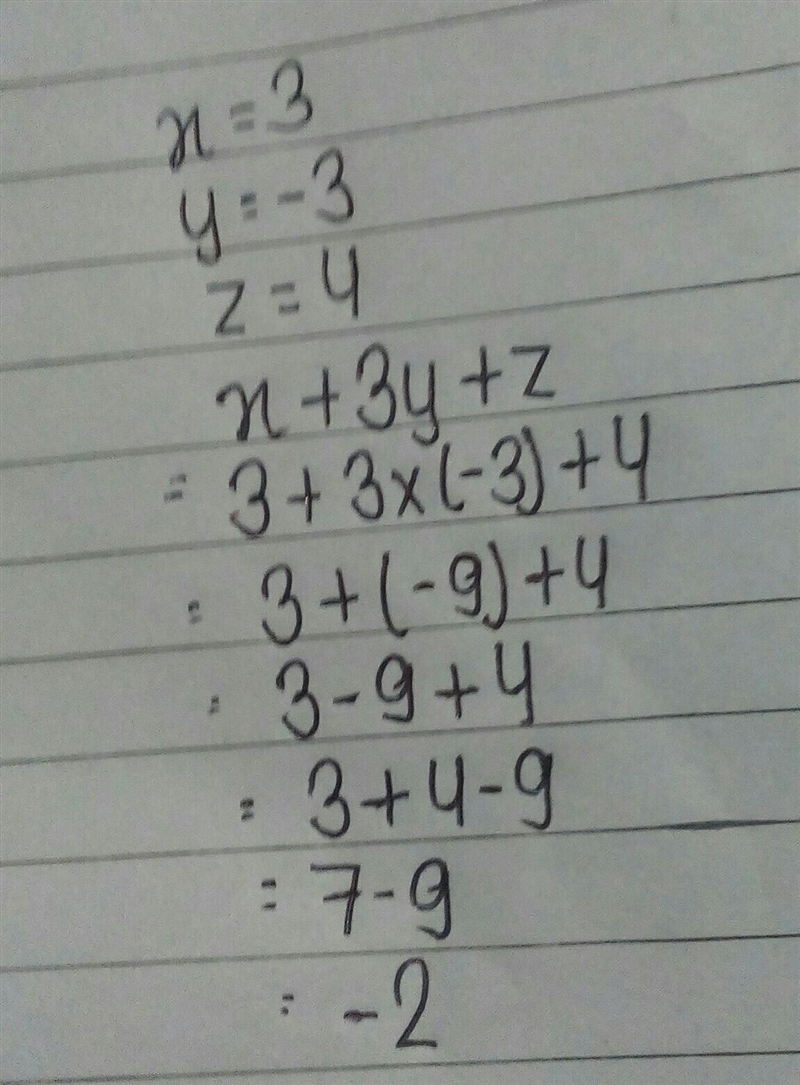 x = 3
y = -3
z = 4
x + 3y + z
= 3 + 3×(-3) + 4
= 3 + (-9) + 4
= 3 - 9 + 4
= 3 + 4 - 9
= 7 - 9
= -2